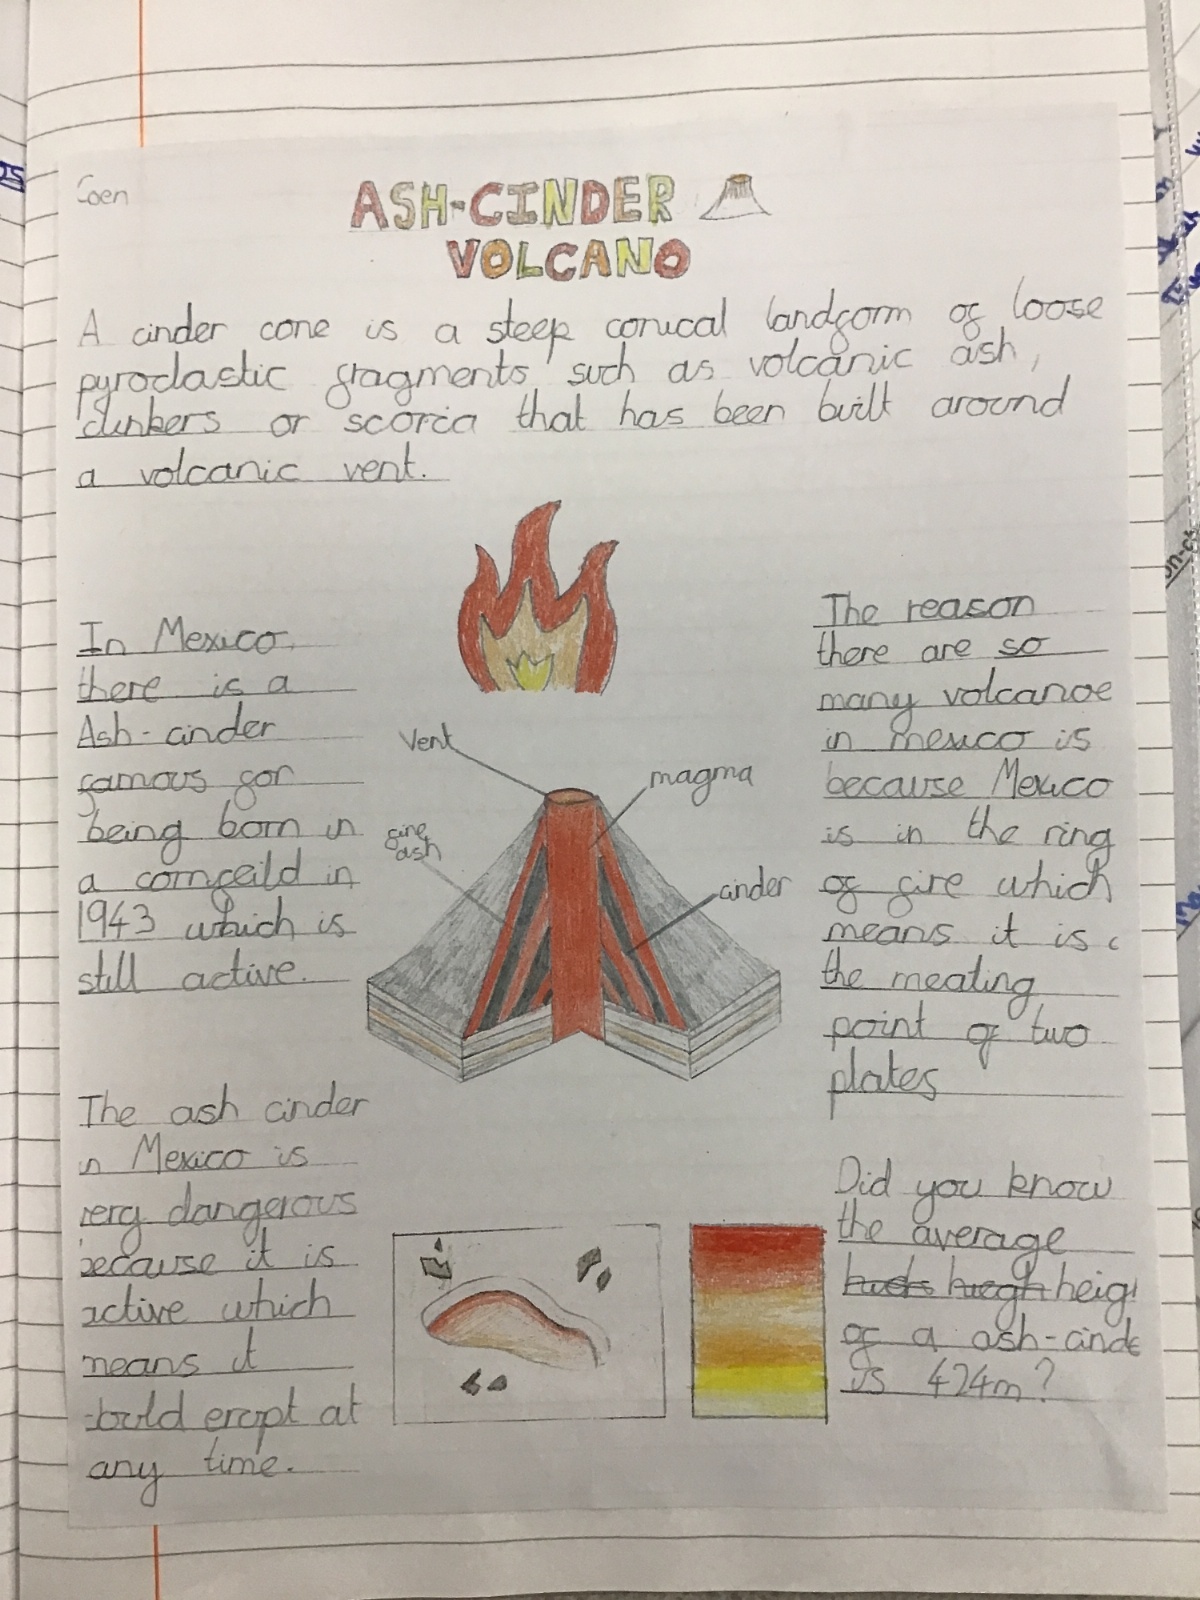 Coen
ASH-CINDER
VOLCANO
A cinder cone is a steep conical landform of loose
pyroclastic fragments such as volcanic ash,
clinkers or scoria that has been built around
a volcanic vent.
In Mexico,
there is a
Ash-cinder
famous for
being born in
a cornfeild in
1943 which is
still active.
The ash cinder
in Mexico is
very dangerous
because it is
active which
means it
could erupt at
any time.
Vent
magma
fine
ash
cinder
The reason
there are so
many volcanoe
in mexico is
because Mexico
is in the ring
of fire which
means it is
the meating
point of two
plates
Did you know
the average
heigh
of a ash-cinde
is 424m?